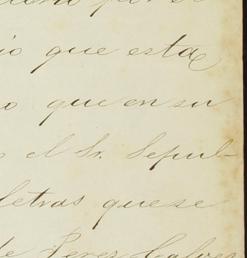 que esta
que en su
el Sr. Sepul-
letras que se
de Perez Galvez